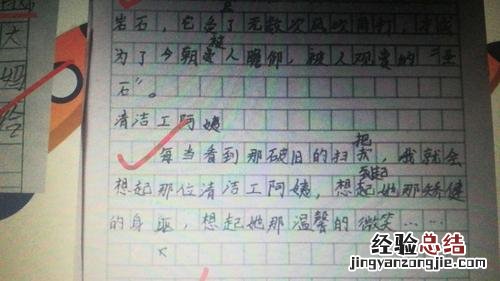 岩石，它经了无数次风吹雨打，才成
为了今朝被人瞻仰，被人观赏的“怪
石”。
清洁工阿姨
每当看到那破旧的扫把，我就会
想起那位清洁工阿姨，想起她那矫健
的身躯，想起她那温馨的微笑……
经验总结
jingyanzongjie.com